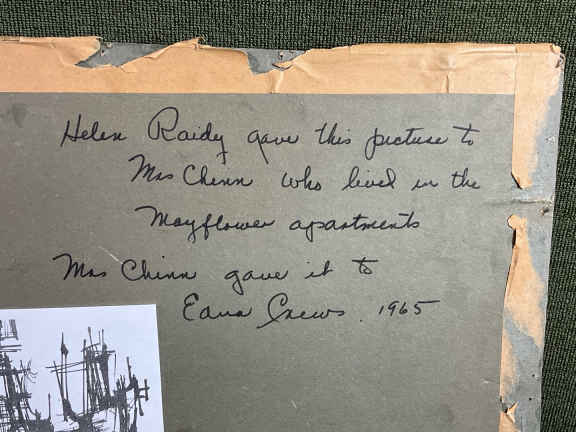 Helen Raidy gave this picture to
Mrs Chinn who lived in the
Mayflower apartments
Mrs Chinn gave it to
Edna Crews 1965